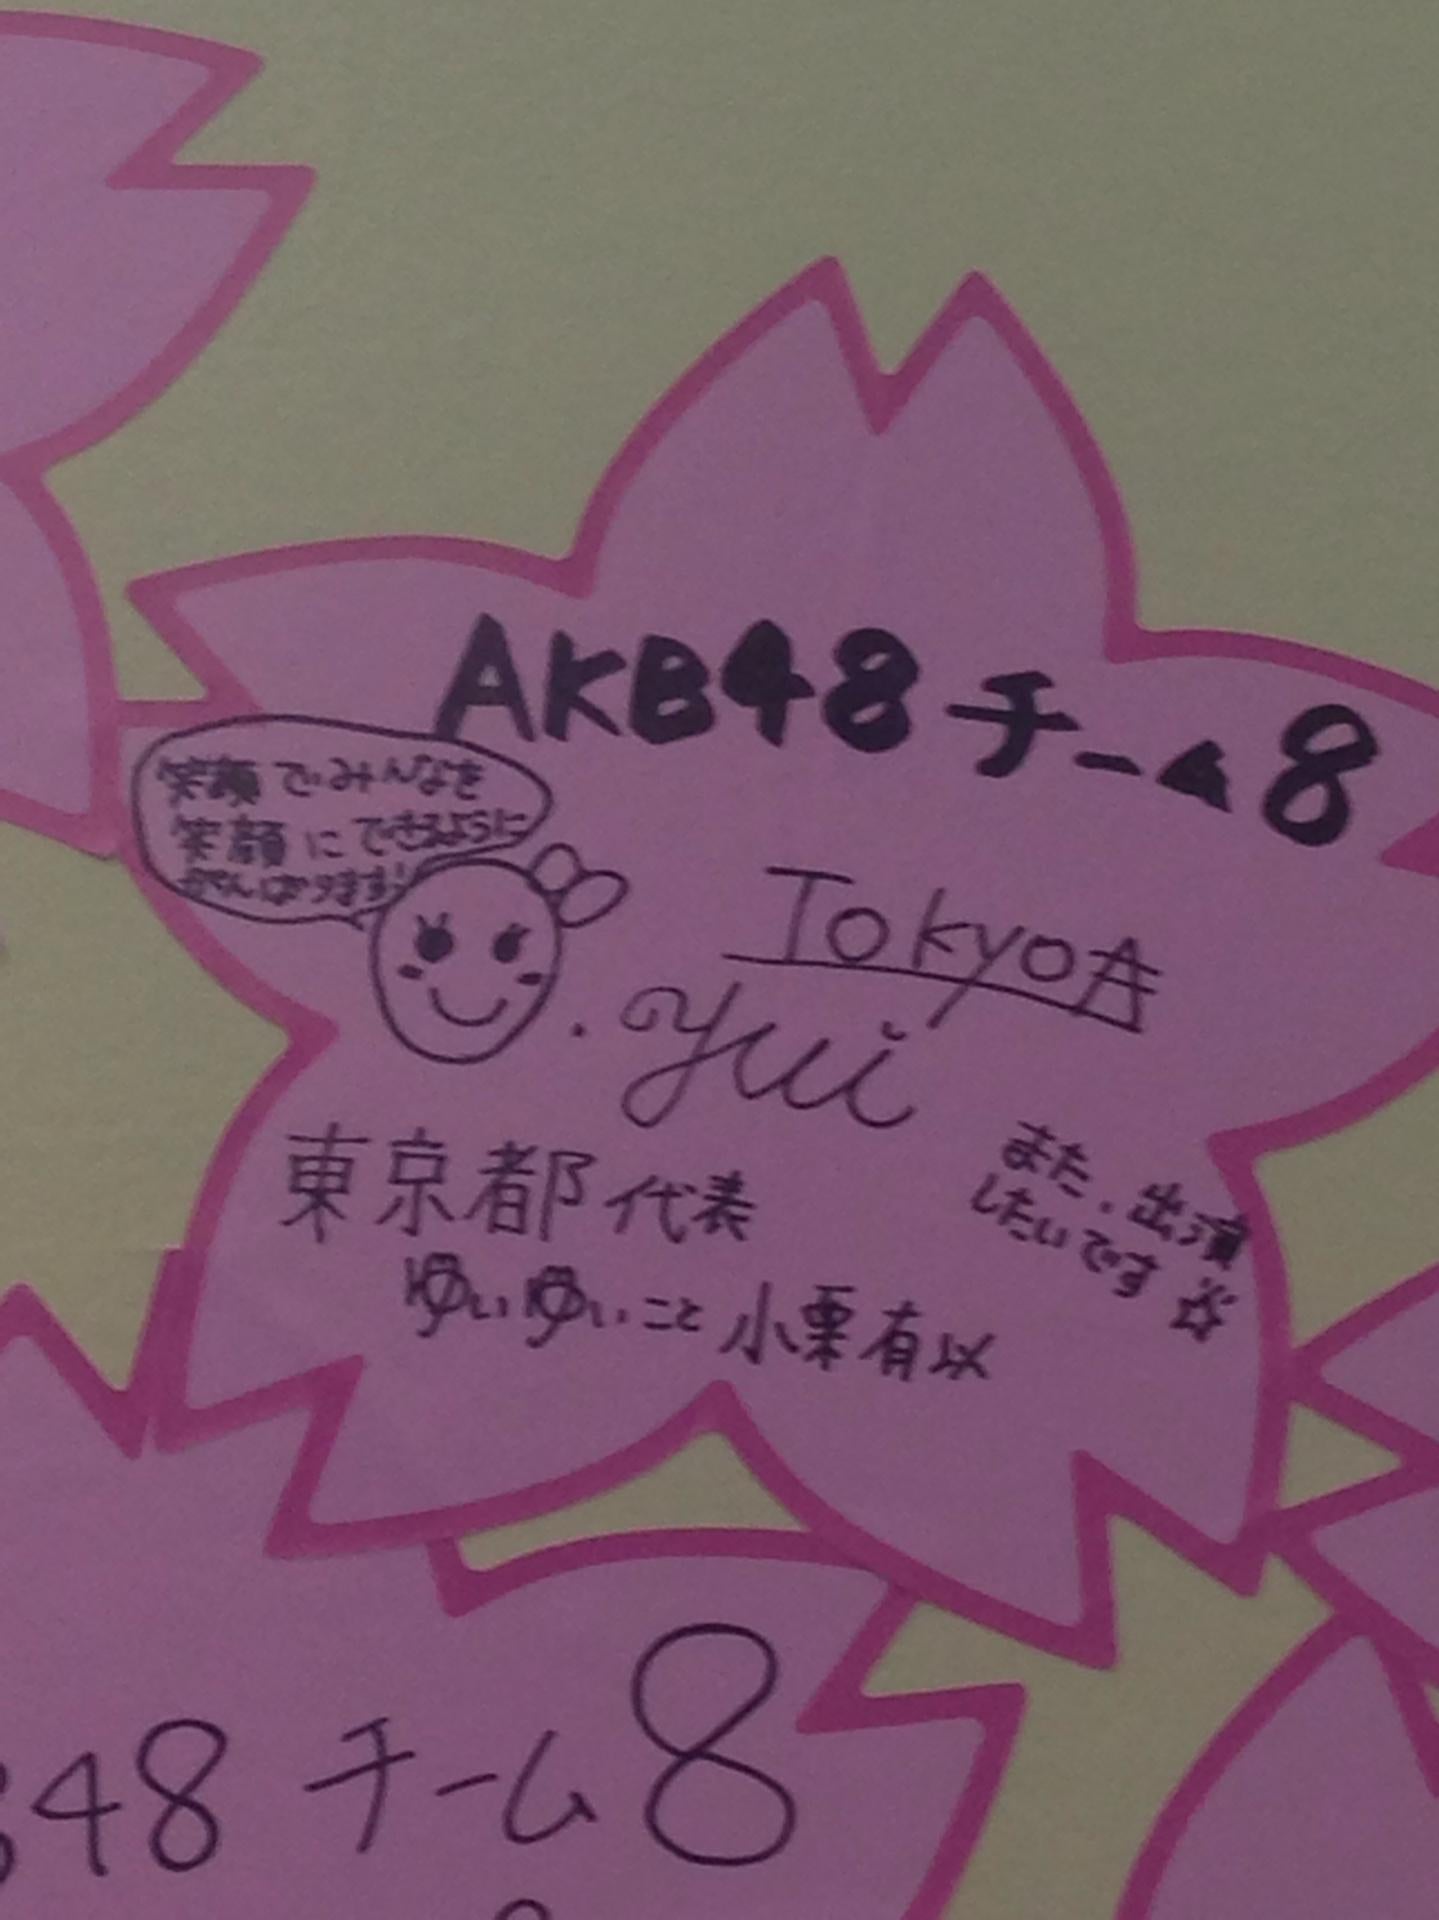 AKB48 チーム8
笑顔でみんなを
笑顔にできるように
がんばります!
Tokyo
.yui
東京都代表
ゆいゆいこと小栗有以
また、出演
したいです☆
48 チーム8